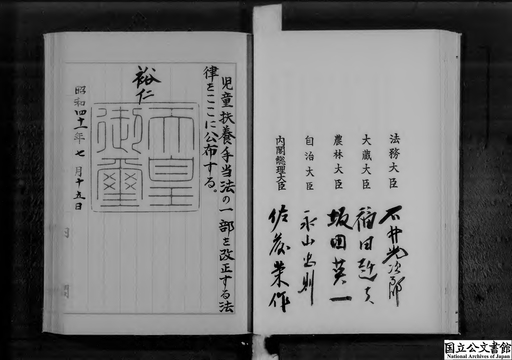 法務大臣 石井光次郎
大蔵大臣 福田赳夫
農林大臣 坂田英一
自治大臣 永山忠則
内閣総理大臣 佐藤栄作
児童扶養手当法の一部を改正する法
律をここに公布する。
裕仁
天皇
御璽
昭和四十一年七月十五日
国立公文書館
National Archives of Japan